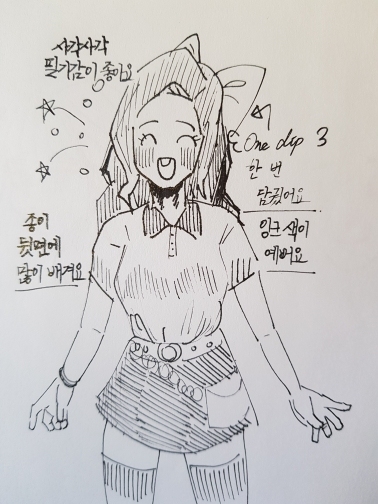 사각사각
필기감이 좋아요
One dip 3
한 번
담궜어요
잉크색이
예뻐요
종이
뒷면에
많이 배겨요